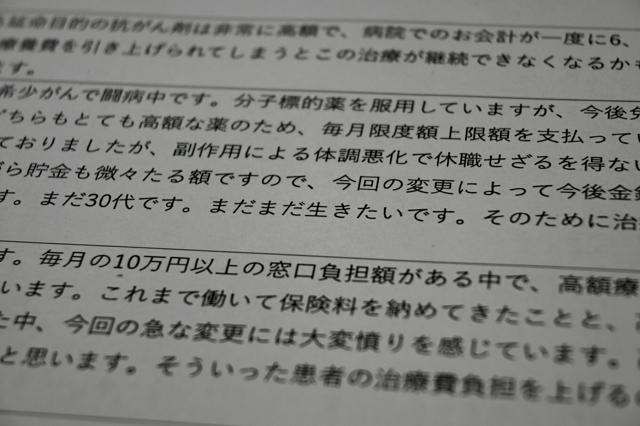 延命目的の抗がん剤は非常に高額で、病院でのお会計が一度に6、
療養費を引き上げられてしまうとこの治療が継続できなくなるかも
ます。
希少がんで闘病中です。分子標的薬を服用していますが、今後免
どちらもとても高額な薬のため、毎月限度額上限額を支払ってい
ておりましたが、副作用による体調悪化で休職せざるを得ない
がら貯金も微々たる額ですので、今回の変更によって今後金銭
す。まだ30代です。まだまだ生きたいです。そのために治
す。毎月の10万円以上の窓口負担額がある中で、高額療
います。これまで働いて保険料を納めてきたことと、
た中、今回の急な変更には大変憤りを感じています。
と思います。そういった患者の治療費負担を上げるの